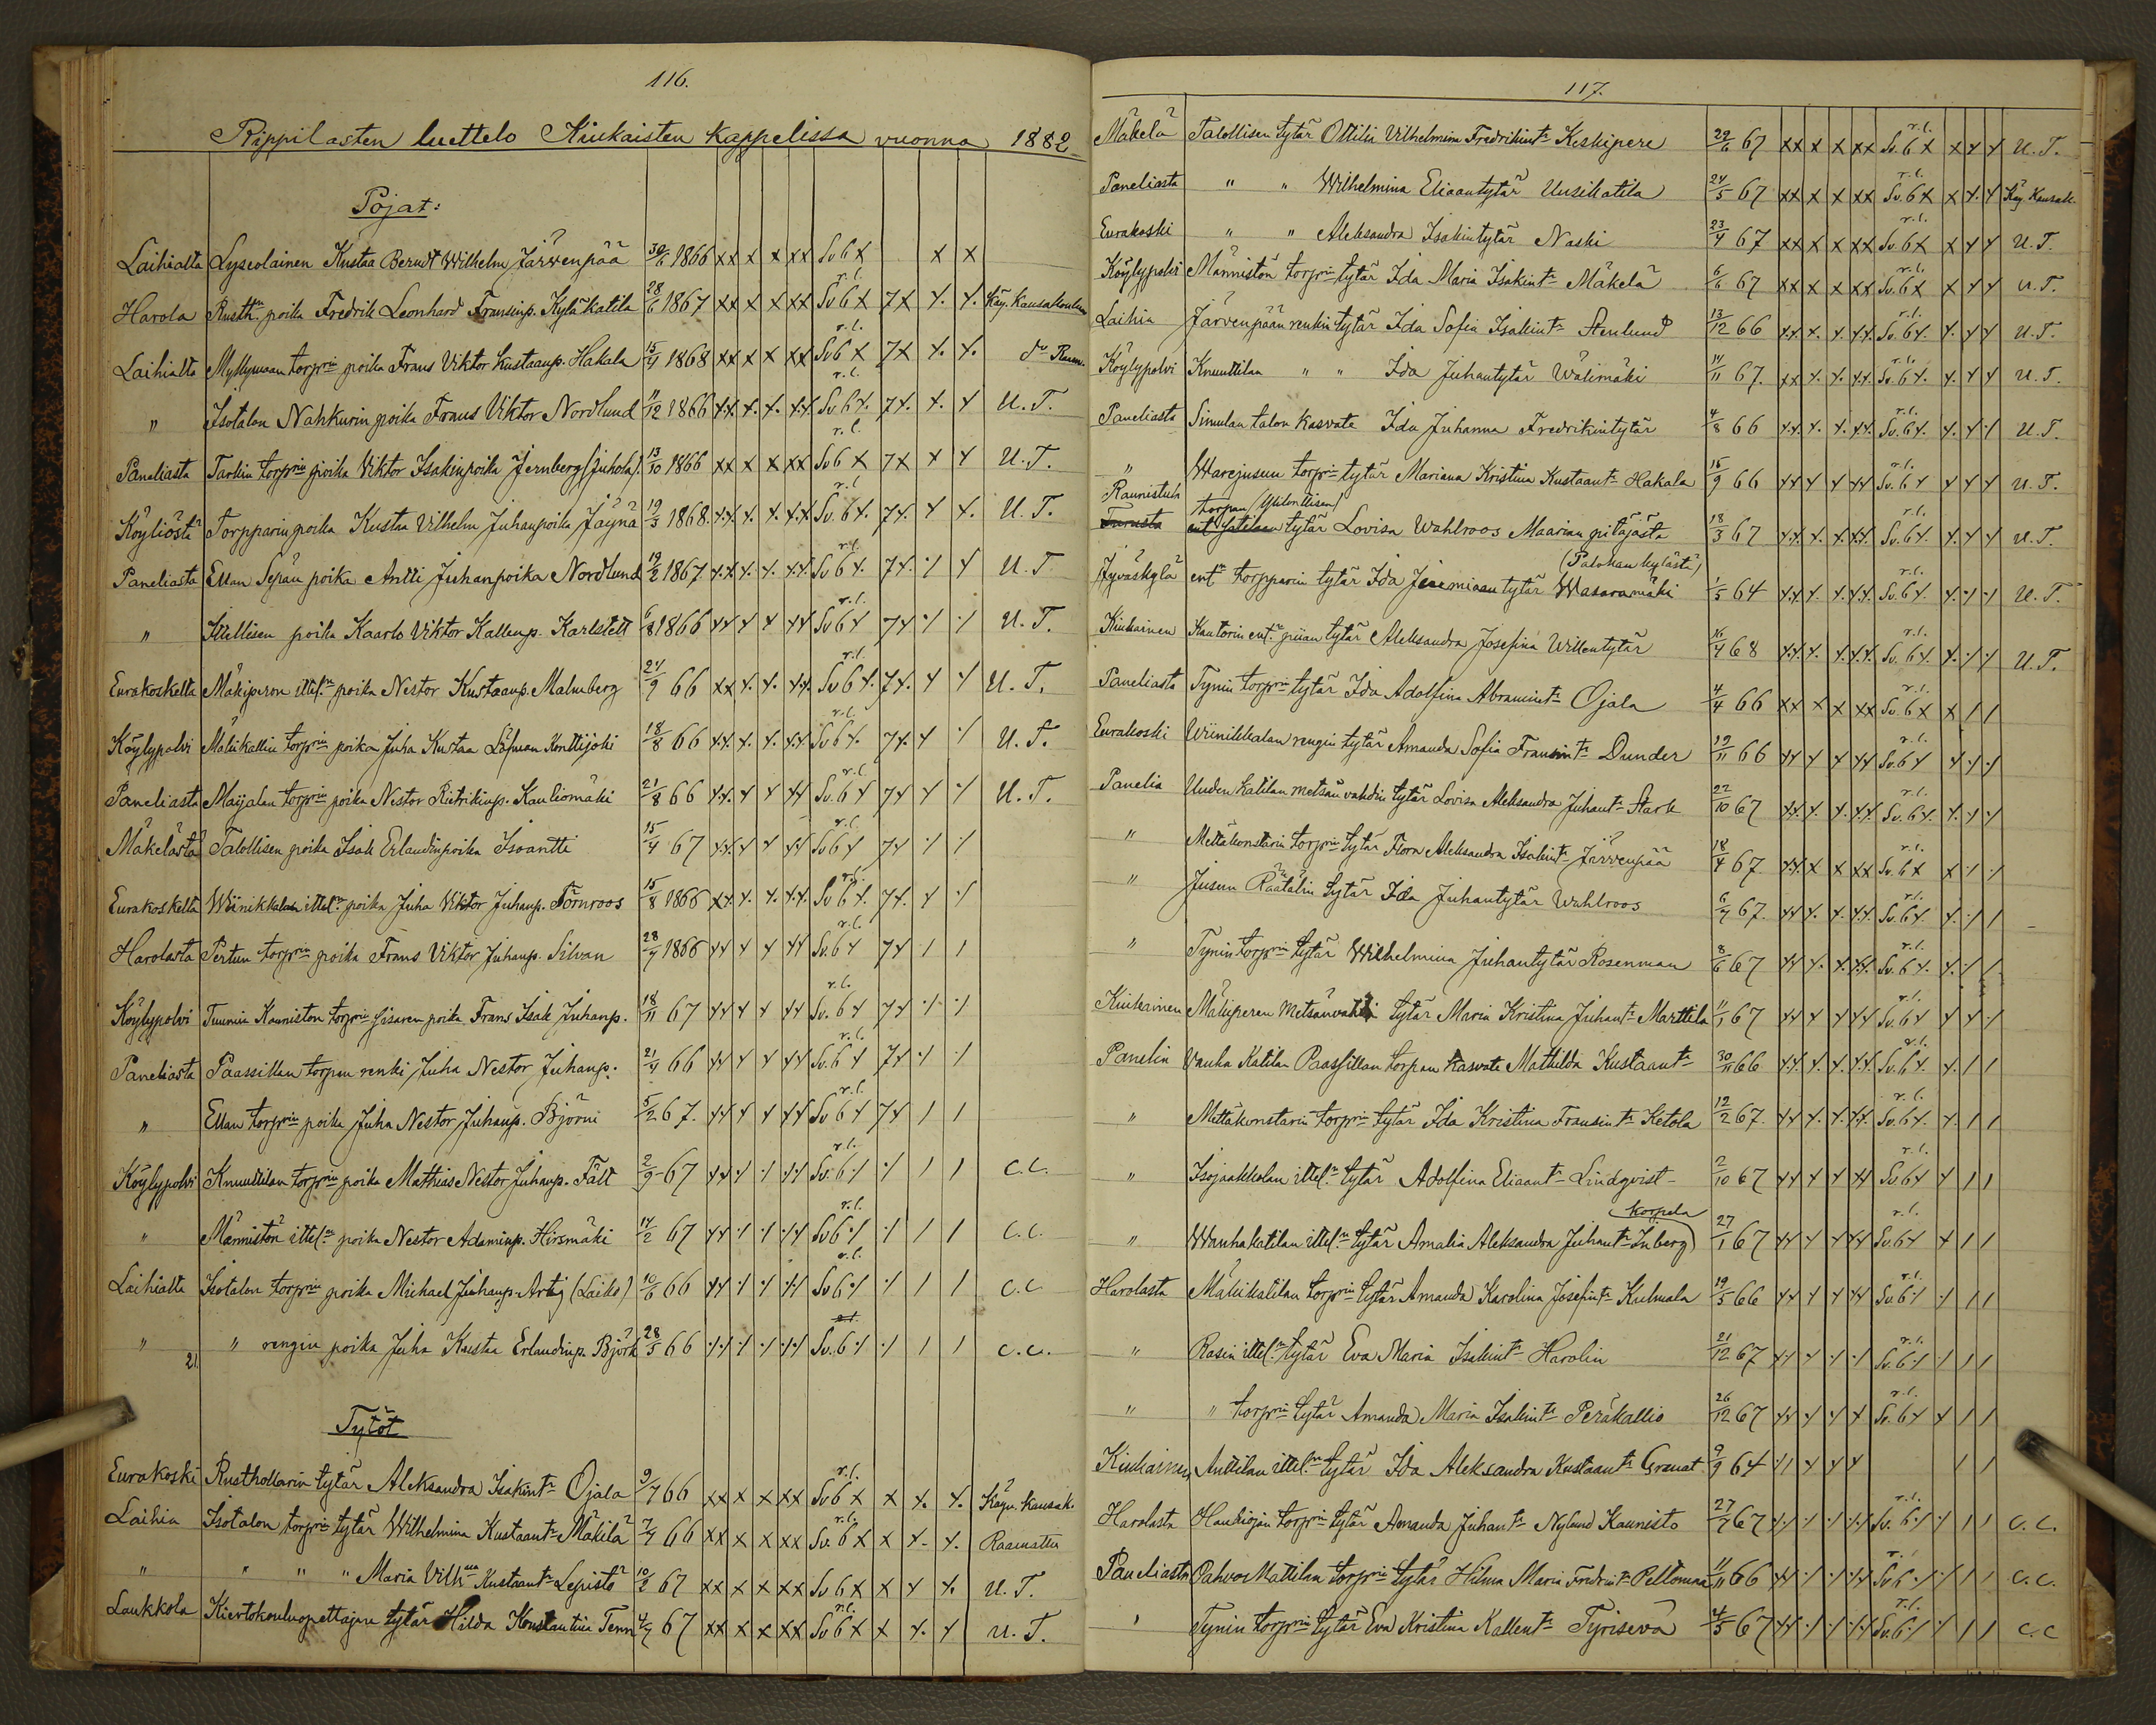 116.
Rippilasten luettelo Kiukaisten Kappelissa vuonna 1882
Pojat:
Laihialta Lyseolainen Kustaa Berndt Wilhelm Järvenpää 30/6 1866 xx x x xx Sv 6 x x x
Harola Rusth:n poika Fredrik Leonhard Fransinp. Kyläkatila 28/6 1867 xx x x xx Sv 6 x 7x x. x. Käy. Kansakoulun
Laihialta Myllymaan torp:rin poika Frans Viktor Kustaanp. Hakala 15/4 1868 xx x x xx Sv 6 x 7x x. x.
" Isotalon Nahkurin poika Frans Viktor Nordlund 11/12 1866 xx x. x. xx Sv. 6 x. 7x. x. x U. T.
Paneliasta Tarkin torp:rin poika Viktor Isakinpoika Jernberg (Juhola) 13/10 1866 xx x x xx Sv 6 x 7x x x U. T.
Köyliöstä Torpparin poika Kustaa Vilhelm Juhanpoika Jäynä 19/3 1868. xx x. x. xx Sv. 6 x. 7x. x x. U. T.
Paneliasta Ellan Sepän poika Antti Juhanpoika Nordlund 19/2 1867. xx x. x. xx Sv 6 x. 7x. x x U. T.
" Itellisen poika Kaarlo Viktor Kallenp. Karlstett 6/8 1866 xx x x xx Sv 6 x 7x x x U. T.
Eurakoskelta Mäkiperon ittel:n poika Nestor Kustaanp. Malmberg 21/9 66 xx x. x. xx Sv 6 x. 7x. x x U. T.
Köylypolvi Mälikallin torp:rin poika Juha Kustaa Löfman Konttijoki 18/8 66 xx x. x. xx Sv 6 x. 7x. x x U. T.
Paneliasta Maijalan torp:rin poika Nestor Kauliomäki 21/8 66 xx x x xx Sv. 6 x 7x x x U. T.
Mäkelästä Talollisen poika Isak Erlandinpoika Isoantti 15/4 67 xx x x xx Sv 6 x 7x x x
Eurakoskelta Wiinikkalan ittel:n poika Juha Viktor Juhanp. Törnroos 15/8 1866 xx x. x. xx Sv 6 x. 7x. x x
Harolasta Pertun torp:rin poika Frans Viktor Juhanp. Silvan 28/7 1866 xx x x xx Sv. 6 x 7x / /
Köylypolvi Tuumin Kauniston torp:rin sisaren poika Frans Isak Juhanp. 18/11 67 xx x x xx Sv. 6 x 7x x x
Paneliasta Paassillan torpan renki Juha Nestor Juhanp. 21/4 66 xx x x xx Sv. 6 x 7x x x
" Ellan torp:rin poika Juha Nestor Juhanp. Björni 5/2 67. xx x x xx Sv 6 x 7x / /
Köylypolvi Knuuttilan torp:rin poika Mathias Nestor Juhanp. Fält 2/9 67 xx x x xx Sv. 6 x x / / C. C.
" Männistön ittel:n poika Nestor Adaminp. Hirsmäki 14/2 67 xx x x xx Sv 6 x x / / C. C.
Laihialta Isotalon torp:rin poika Michael Juhanp. Artig (Laiko) 10/6 66 xx x x xx Sv 6 x x / / C. C
" " rengin poika Juha Kustaa Erlandinp. Björk 28/5 66 xx x x xx Sv. 6 x x / / C. C.
21.
Tytöt
Eurakoski Rusthollarin tytär Aleksandra Isakint: Ojala 9/7 66 xx x x xx Sv 6 x x x. x. Käyn. kansak.
Laihia Isotalon torp:rin tytär Wilhelmina Kustaant: Mäkilä 7/4 66 xx x x xx Sv. 6 x x x. x.
" " " " Maria Vilh:na Kustaant: Lepistö 10/2 67 xx x x xx Sv 6 x x x x. U. T.
Laukkola Kiertokouluopettajan tytär Hilda Konstantina Tenn 4/7 67 xx x x xx Sv 6 x x x. x U. T.
117.
Mäkelä Talollisen tytär Ottilia Vilhelmina Fredrikint: Keskipere 29/6 67 xx x x xx Sv. 6 x x x x U. T.
Paneliasta " " Wilhelmina Eliaantytär Uusikatila 24/5 67 xx x x xx Sv. 6 x x x x Käy. Kansak.
Eurakoski " " Aleksandra Isakintytär Naski 23/4 67 xx x x xx Sv. 6 x x x x U. T.
Köylypolvi Männistön torp:rin tytär Ida Maria Isakint: Mäkelä 6/6 67 xx x x xx Sv. 6 x x x x U. T.
Laihia Järvenpään renkin tytär Ida Sofia Isakint: Stenlund 13/12 66 xx x. x. xx Sv. 6 x. x. x x U. T.
Köylypolvi Knuuttilan " " Ida Juhantytär Wälimäki 14/11 67. xx x. x. xx Sv. 6 x. x. x x U. T.
Paneliasta Simulan talon kasvate Ida Juhanna Fredrikintytär 4/8 66 xx x. x. xx Sv. 6 x. x. x x U. T.
" Warejusun torp:rin tytär Mariana Kristina Kustaant: Hakala 15/9 66 xx x x xx Sv. 6 x x x x U. T.
Raunistula torpan
Turusta tytär Lovisa Wahlroos Maarian pitäjästä 18/3 67 xx x. x. xx Sv. 6 x. x. x x U. T.
(Palokan kylästä)
Jyväskylä ent:n torpparin tytär Ida Jeremiaan tytär Wasaramäki 1/5 64 xx x. x. xx Sv. 6 x. x. x x U. T.
Kiukainen Kantorin ent:n piian tytär Aleksandra Josefina Willentytär 16/4 68 xx x. x. xx Sv. 6 x. x. x x U. T.
Paneliasta Tynin torp:rin tytär Ida Adolfina Abramint: Ojala 4/4 66 xx x x xx Sv. 6 x x / /
Eurakoski Wiinikkalan rengin tytär Amanda Sofia Fransint: Dunder 19/11 66 xx x x xx Sv. 6 x x x x
Panelia Uuden Katilan metsän vahdin tytär Lovisa Aleksandra Juhant: Stark 22/10 67 xx x. x. xx Sv. 6 x. x. x x
" Mettäkonstarin torp:rin tytär Flora Aleksandra Isakint: Järvenpää 18/4 67. xx x x xx Sv. 6 x x x x
" Jusun Räätälin tytär Ida Juhantytär Wahlroos 6/7 67. xx x. x. xx Sv. 6 x. x. x /
" Tynin torp:rin tytär Wilhelmina Juhantytär Rosenman 8/6 67 xx x. x. xx Sv. 6 x. x. x /
Kiukainen Mäliperen metsänvahdin tytär Maria Kristina Juhant: Marttila 11/1 67 xx x x xx Sv. 6 x x x x
Panelia Vanha Katilan Paassillan torpan kasvate Mathilda Kustaant: 30/11 66 xx x. x. xx Sv. 6 x. x. / /
" Mettäkonstarin torp:rin tytär Ida Kristina Fransint: Ketola 12/2 67. xx x. x. xx Sv. 6 x. x. / /
" Isojaakkolan ittel:n tytär Adolfina Eliaant: Lindqvist 2/10 67 xx x x xx Sv 6 x x / /
Korpela
" Wanhakatilan ittel:n tytär Amalia Aleksandra Juhant: Inberg 27/1 67 xx x x xx Sv. 6 x x / /
Harolasta Mälikatilan torp:rin tytär Amanda Karolina Josefint: Kulmala 19/5 66 xx x x xx Sv. 6 x x / /
" Rasin ittel:n tytär Eva Maria Isakint: Harolin 21/12 67 xx x x x Sv. 6 x x / /
" " torp:rin tytär Amanda Maria Isakint: Peräkallio 26/12 67 xx x x x Sv. 6 x x / /
Kiukainen Anttilan ittel:n tytär Ida Aleksandra Kustaant: Granat 9/9 64 x/ x x x / /
Harolasta Haukiojan torp:rin tytär Amanda Juhant: Nylund Kaunisto 27/7 67 xx x x xx Sv. 6 x x / / C. C.
Paneliasta Pahvos Mattilan torp:rin tytär Hilma Maria Fredrint: Pellonmaa 11/11 66 xx x x xx Sv 6 x x / / C. C.
" Tynin torp:rin tytär Eva Kristina Kallent: Tyrisevä 4/5 67 xx x x xx Sv. 6 x x / / C. C